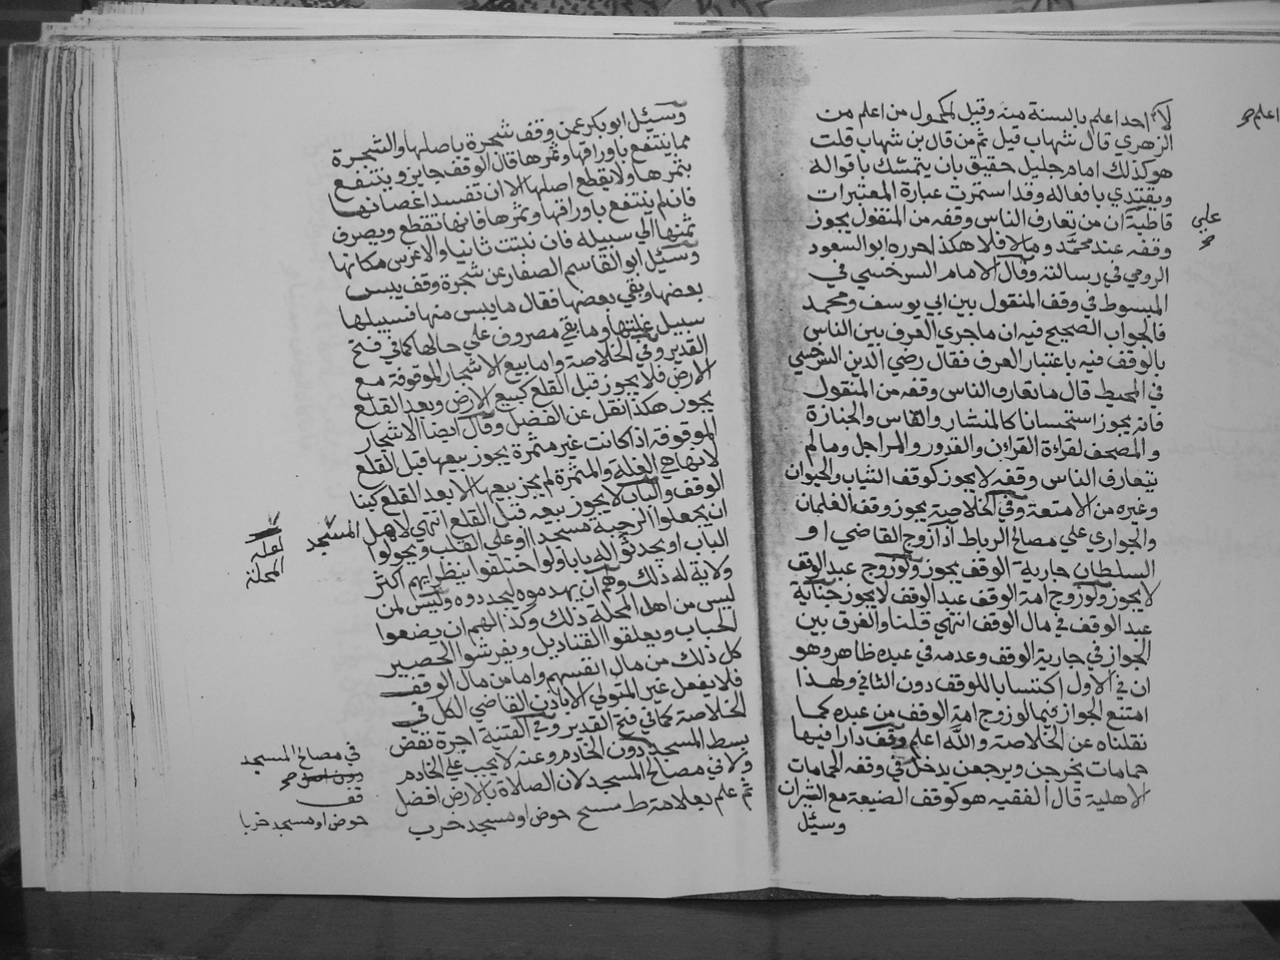 لا احد اعلم بالسنة منه وقيل لمكحول من اعلم من
الزهري قال شهاب قيل ثم من قال بن شهاب قلت
هو كذلك امام جليل حقيق بان يتمسك باقواله
ويقتدي بافعاله وقد استمرت عبارة المعتبرات
قاطبة ان من تعارف الناس وقفه من المنقول يجوز
وقفه عند محمد وما لا فلا هكذا حرره ابو السعود
الرومي في رسالته وقال الامام السرخسي في
المبسوط في وقف المنقول بين ابي يوسف ومحمد
فالجواب الصحيح فيه ان ما جري العرف بين الناس
بالوقف فيه باعتبار العرف فقال رضي الدين السرخسي
في المحيط قال ما تعارف الناس وقفه من المنقول
فانه يجوز استحسانا كالمنشار والفاس والجنازة
والمصحف لقراءة القراءن والقدور والمراجل وما لم
يتعارف الناس وقفه لا يجوز كوقف الثياب والحيوان
وغيره من الامتعة وفي الخلاصة يجوز وقف الغلمان
والجواري علي مصالح الرباط اذا زوج القاضي او
السلطان جارية الوقف يجوز ولو زوج عبد الوقف
لا يجوز ولو زوج امة الوقف عبد الوقف لا يجوز جناية
عبد الوقف في مال الوقف انتهي قلنا والفرق بين
الجواز في جارية الوقف وعدمه في عبده ظاهر وهو
ان في الاول اكتسابا للوقف دون الثاني ولهذا
امتنع الجواز فيما لو زوج امة الوقف من عبده كما
نقلناه عن الخلاصة والله اعلم وقف دارا فيها
حمامات يخرجن ويرجعن يدخل في وقفه الحمامات
الاهلية قال الفقيه هو كوقف الضيعة مع الثيران
وسئل
اعلم صح
علي
وسئل ابو بكر عمن وقف شجرة باصلها والشجرة
مما ينتفع باوراقها وثمرها قال الوقف جايز وينتفع
بثمرها ولا يقطع اصلها الا ان تفسد اغصانها
فان لم ينتفع باوراقها وثمرها فانها تقطع ويصرف
ثمنها الي سبيله فان نبتت ثانيا والا غرس مكانها
وسئل ابو القاسم الصفار عن شجرة وقف يبس
بعضها وبقي بعضها فقال ما يبس منها فسبيلها
سبيل غلتها وما بقي مصروف علي حالها كما في فتح
القدير وفي الخلاصة واما بيع الاشجار الموقوفة مع
الارض فلا يجوز قبل القلع كبيع الارض وبعد القلع
يجوز هكذا نقل عن الفضل وقال ايضا الاشجار
الموقوفة اذا كانت غير مثمرة يجوز بيعها قبل القلع
لانها هي الغلة والمثمرة لم يجز بيعها الا بعد القلع كبنا
الوقف والباب لا يجوز بيعه قبل القلع انتهي لاهل المسجد
ان يجعلوا الرحبة مسجدا او علي القلب ويحولوا
الباب او يحدثوا له بابا ولو اختلفوا ينظر ايهم اكثر
ولاية له ذلك وهم ان يهدموه ليجددوه وليس لمن
ليس من اهل المحلة ذلك وكذا لهم ان يضعوا
الحباب ويعلقوا القناديل ويفرشوا الحصير
كل ذلك من مال انفسهم واما من مال الوقف
فلا يفعل غير المتولي الا باذن القاضي الكل في
الخلاصة كما في فتح القدير وفي القنية اجرة نفض
بسط المسجد دون الخادم وعنه لا يجب علي الخادم
ولا في مصالح المسجد لان الصلاة بالارض افضل
ثم علم بعلامة ط مسبح حوض او مسجد خرب
لعله
المحلة
في مصالح المسجد
قف
حوض او مسجد خربا